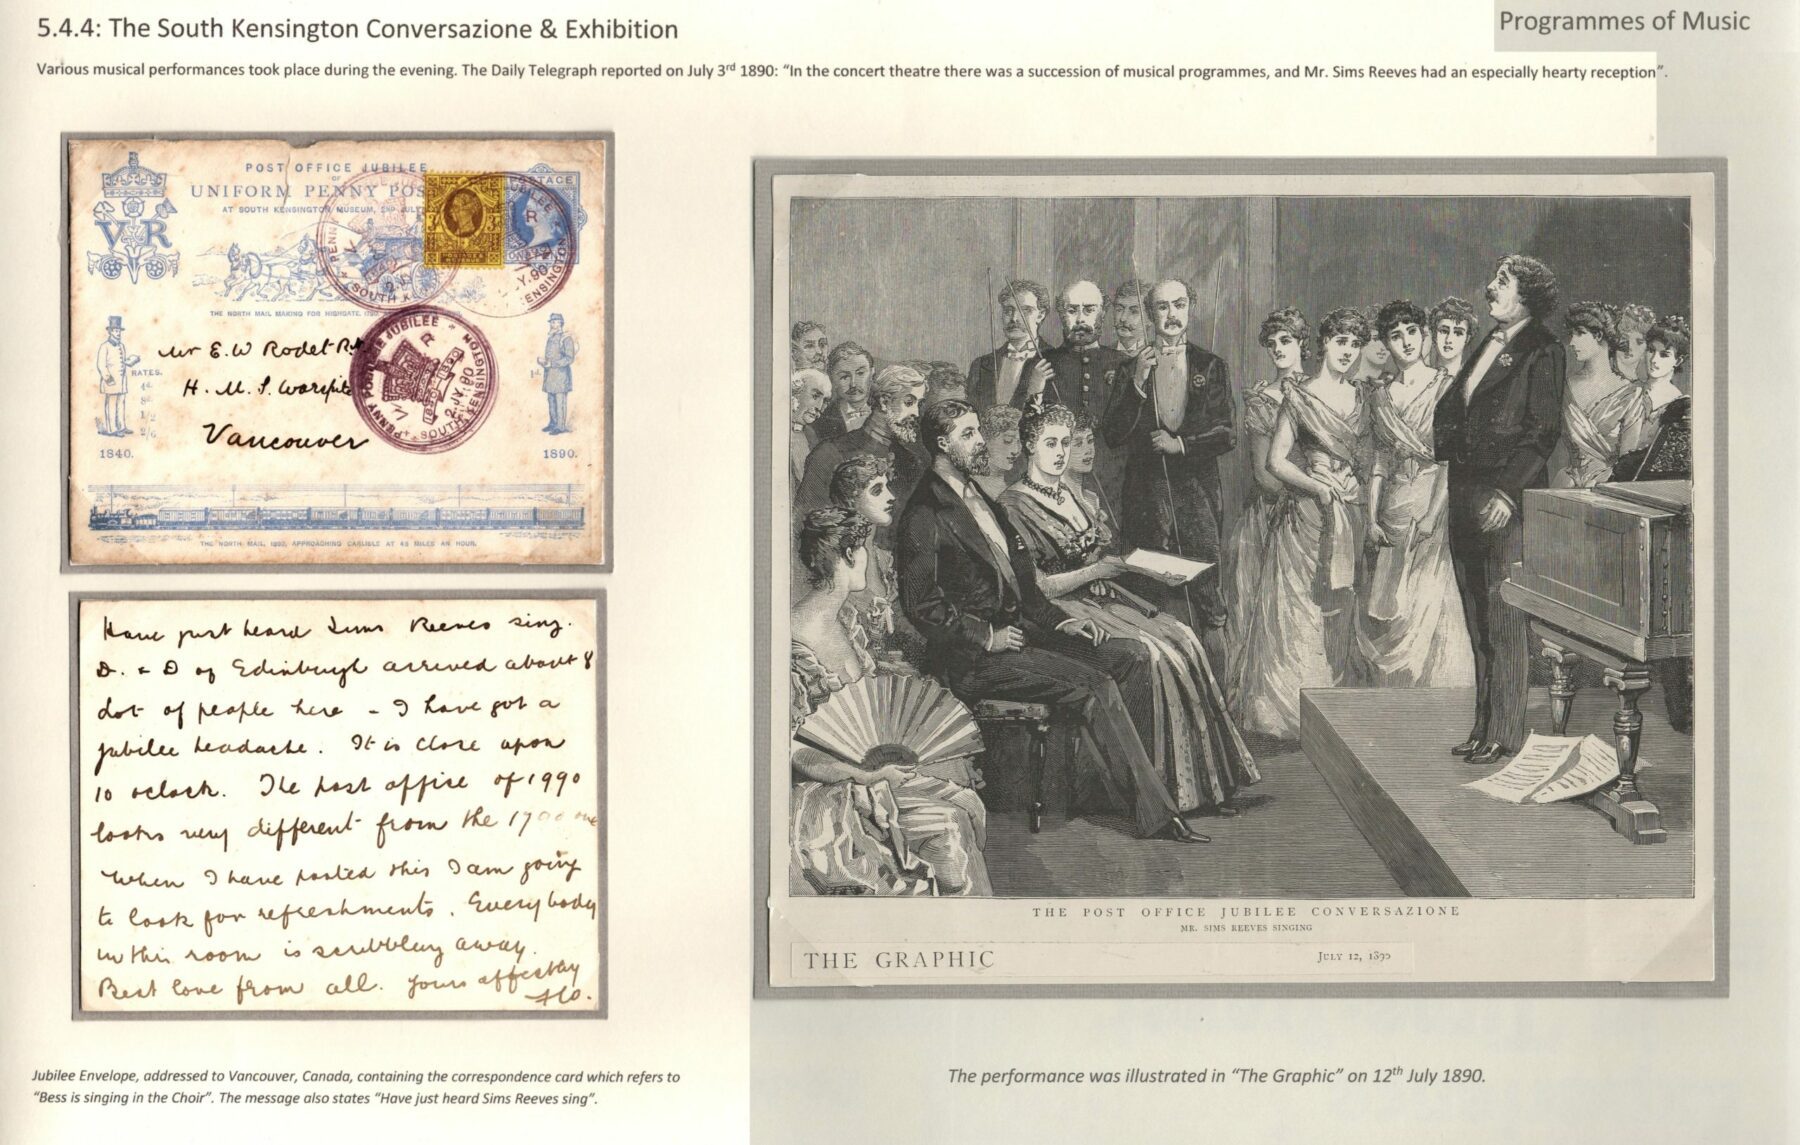 5.4.4: The South Kensington Conversazione & Exhibition
Programmes of Music
Various musical performances took place during the evening. The Daily Telegraph reported on July 3rd 1890: “In the concert theatre there was a succession of musical programmes, and Mr. Sims Reeves had an especially hearty reception”.
POST OFFICE JUBILEE
OF
UNIFORM PENNY POS
AT SOUTH KENSINGTON MUSEUM, 2ND JULY
POSTAGE
VR
THE NORTH MAIL MAKING FOR HIGHGATE. 1790.
PENNY POSTAGE JUBILEE
V R
1890
2 JY. 90
SOUTH KENSINGTON
Mr E. W Rodet R.N
H. M. S. Warspite
Vancouver
RATES.
4d.
8d.
1/2
2/6
1d.
1840.
1890.
THE NORTH MAIL, 1890, APPROACHING CARLISLE AT 48 MILES AN HOUR.
Have just heard Sims Reeves sing.
D. & D of Edinburgh arrived about 8
Lot of people here - I have got a
jubilee headache. It is close upon
10 oclock. The post office of 1990
looks very different from the 1790 one
When I have posted this I am going
to look for refreshments. Everybody
in this room is scribbling away.
Best love from all. Yours affectly
Flo.
THE POST OFFICE JUBILEE CONVERSAZIONE
MR. SIMS REEVES SINGING
THE GRAPHIC
JULY 12, 1890
Jubilee Envelope, addressed to Vancouver, Canada, containing the correspondence card which refers to
“Bess is singing in the Choir”. The message also states “Have just heard Sims Reeves sing”.
The performance was illustrated in “The Graphic” on 12th July 1890.